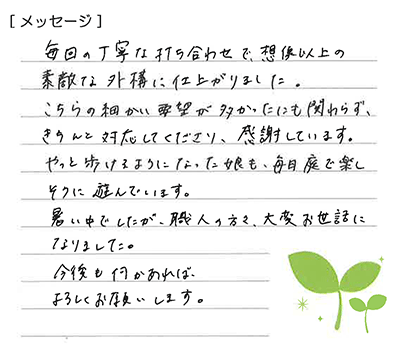 [メッセージ]
毎回の丁寧な打ち合わせで、想像以上の
素敵な外構に仕上がりました。
こちらの細かい要望が多かったにも関わらず、
きちんと対応してくださり、感謝しています。
やっと歩けるようになった娘も、毎日庭で楽し
そうに遊んでいます。
暑い中でしたが、職人の方々、大変お世話に
なりました。
今後も何かあれば、
よろしくお願いします。